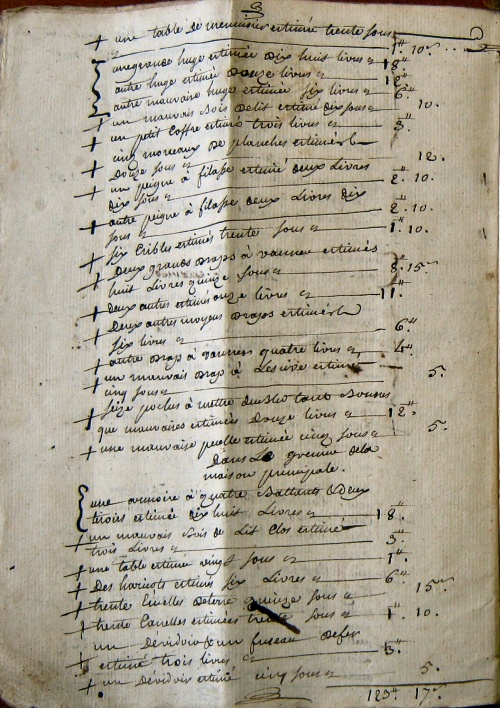 3
+ une table de menuisier estimée trente sous 1. 10.
une grande huge estimée dix huit livres 18
autre huge estimée douze livres 12
autre mauvaise huge estimée six livres 6.
+ un mauvais bois de lit estimé dix sous 10.
+ un petit coffre estimé trois livres 3.
+ cinq morceaux de planches estimés
douze sous 12.
+ un peigne à filasse estimé deux livres
dix sous 2. 10.
+ autre peigne à filasse deux livres dix
sous 2. 10.
+ six cribles estimés trente sous 1. 10.
+ deux grands draps à vanner estimés
huit livres quinze sous 8. 15
+ deux autres estimés onze livres 11.
+ deux autres moyens draps estimés
six livres 6.
+ autre drap à vanner quatre livres 4.
+ un mauvais drap à lessive estimé
cinq sous 5.
+ seize poches à mettre du bled tant bonnes
que mauvaises estimées douze livres 12
+ une mauvaise poelle estimée cinq sous 5.
Dans le grenier de la
maison principale.
une armoire à quatre battants & deux
tirois estimée dix huit livres 18.
+ un mauvais bois de lit clos estimé
trois livres 3.
+ une table estimée vingt sous 1
+ des haricots estimés six livres 6
+ trente de terre quinze sous 15
+ trente estimées trente sous 1. 10.
un dévidoir & un fuseau de fer
+ estimé trois livres 3.
+ un dévidoir estimé cinq sous 5.
123. 17.